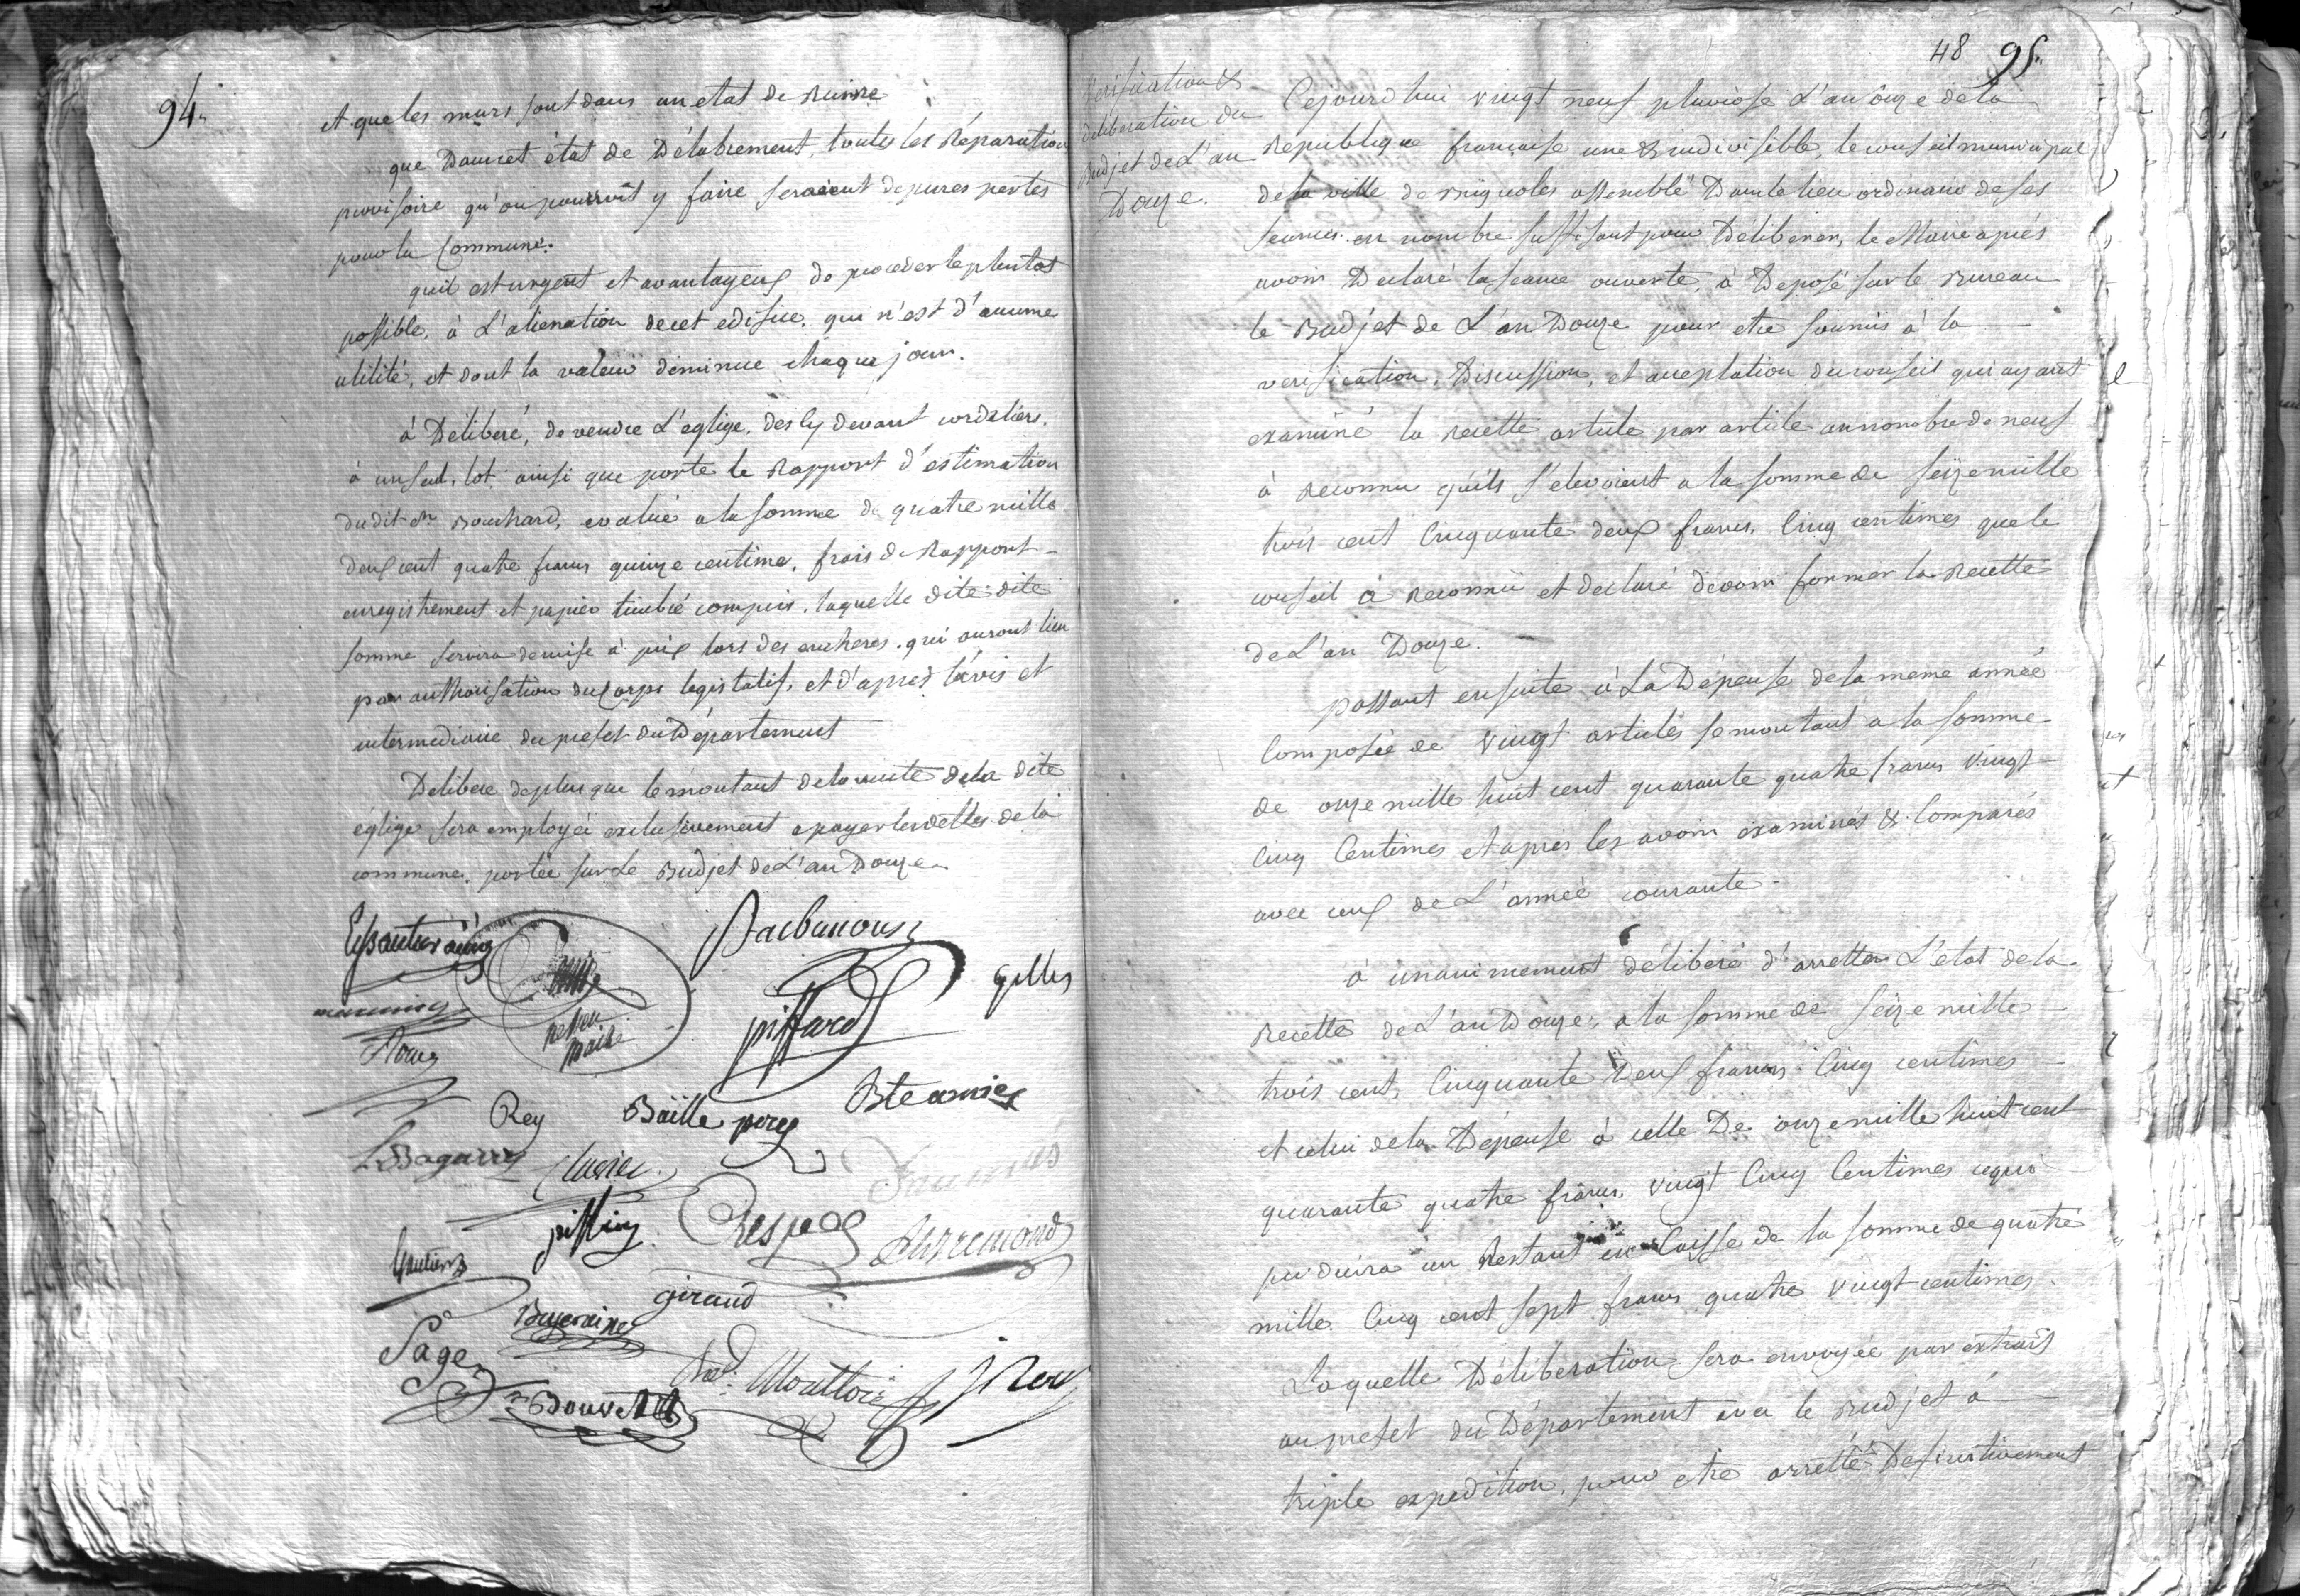 94.
et que les murs sont dans un etat de Ruine
que Dans cet état de Délabrement, toutes les Réparation
provisoire qu'on pourroit y faire seraient de pures pertes
pour la Commune.
quil est urgent et avantageux de proceder le plutot
possible, à L'alienation de cet edifice, qui n'est d'aucune
utilité, et dont la valeur diminue chaque jour.
à Déliberé, de vendre L'eglize, des cy devant cordeliers,
à un seul, lot, ainsi que porte le Rapport d'estimation
du dit Bouchard, evalué a la somme de quatre mille
deux cent quatre francs quinze centime, frais de Rapport
enregistrement et papier timbré compris, laquelle dite dite
somme servira de mise à prix lors des encheres, qui auront lieu
par authorisation du Corps legislatif, et d'aprés l'avis et
intermediaire du prefet du Département
Delibere de plus que le montant de la vente de la dite
églize sera employé exclusivement a payer les dettes de la
commune, portée sur Le Budjet de L'an Douze
Barbaroux
gilles
piffard
Rey
Baille
L Bagarry
giraud
Sage
48 95.
Verification &
deliberation du
Budjet de L'an
Douze.
Cejourd'hui vingt neuf pluviose L'an onze de la
Republique française une & indivisible, le conseil municipal
de la ville de Brignoles assemblé Dans le lieu ordinaire de ses
seances en nombre suffisant pour Délibérer, le Maire aprés
avoir Declaré la seance ouverte, à Deposé sur le Bureau
le Budjet de L'an Douze pour etre soumis à la
verification, Discussion, et acceptation du conseil qui ayant
examiné la recette article par article au nombre de neuf
à Reconnu qu'ils s'elevoient a la somme de seize mille
trois cent Cinquante deux francs, Cinq centimes que le
conseil à Reconnu et declaré devoir former la Recette
de L'an Douze.
passant ensuite à La Dépense de la meme année
Composée de vingt articles se montant a la somme
de onze mille huit cent quarante quatre francs vingt
cinq Centimes et aprés les avoir examinés & Comparés
avec ceux de L'année courante.
à unanimement déliberé d'arretter L'état de la
Recette de L'an Douze, a la somme de seize mille
trois cent, Cinquante Deux francs Cinq centimes
et celui de la Dépense à celle De onze mille huit cent
quarante quatre francs, vingt Cinq Centimes ce qui
produira un Restant en Caisse de la somme de quatre
mille Cinq cent sept francs quatre vingt centimes.
Laquelle Déliberation sera envoyée par extrait
au prefet du Département avec le Budjet à
triple expedition, pour etre arretté Definitivement